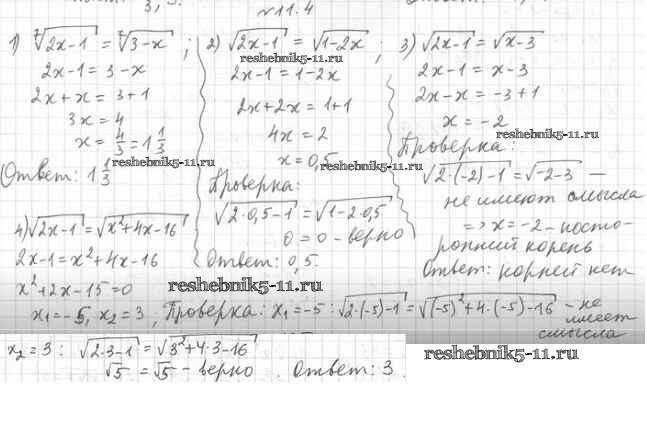 №11.4
1) ⁷√(2x-1) = ⁷√(3-x) ;
2x-1 = 3-x
2x+x = 3+1
3x = 4
x = 4/3 = 1 1/3
Ответ: 1 1/3
2) √(2x-1) = √(1-2x) ;
reshebnik5-11.ru
2x-1 = 1-2x
2x+2x = 1+1
4x = 2
reshebnik5-11.ru
x = 0,5
Проверка:
√(2·0,5-1) = √(1-2·0,5)
0 = 0 - верно
Ответ: 0,5.
3) √(2x-1) = √(x-3)
2x-1 = x-3
2x-x = -3+1
x = -2
reshebnik5-11.ru
Проверка:
√(2·(-2)-1) = √(-2-3) —
не имеют смысла
=> x = -2 - посто-
ронний корень
Ответ: корней нет
4) √(2x-1) = √(x²+4x-16)
2x-1 = x²+4x-16
reshebnik5-11.ru
x²+2x-15=0
x₁=-5, x₂=3, Проверка: x₁=-5: √(2·(-5)-1) = √((-5)²+4·(-5)-16) - не
имеет
смысла
x₂=3: √(2·3-1) = √(3²+4·3-16)
√5 = √5 - верно. Ответ: 3.
reshebnik5-11.ru